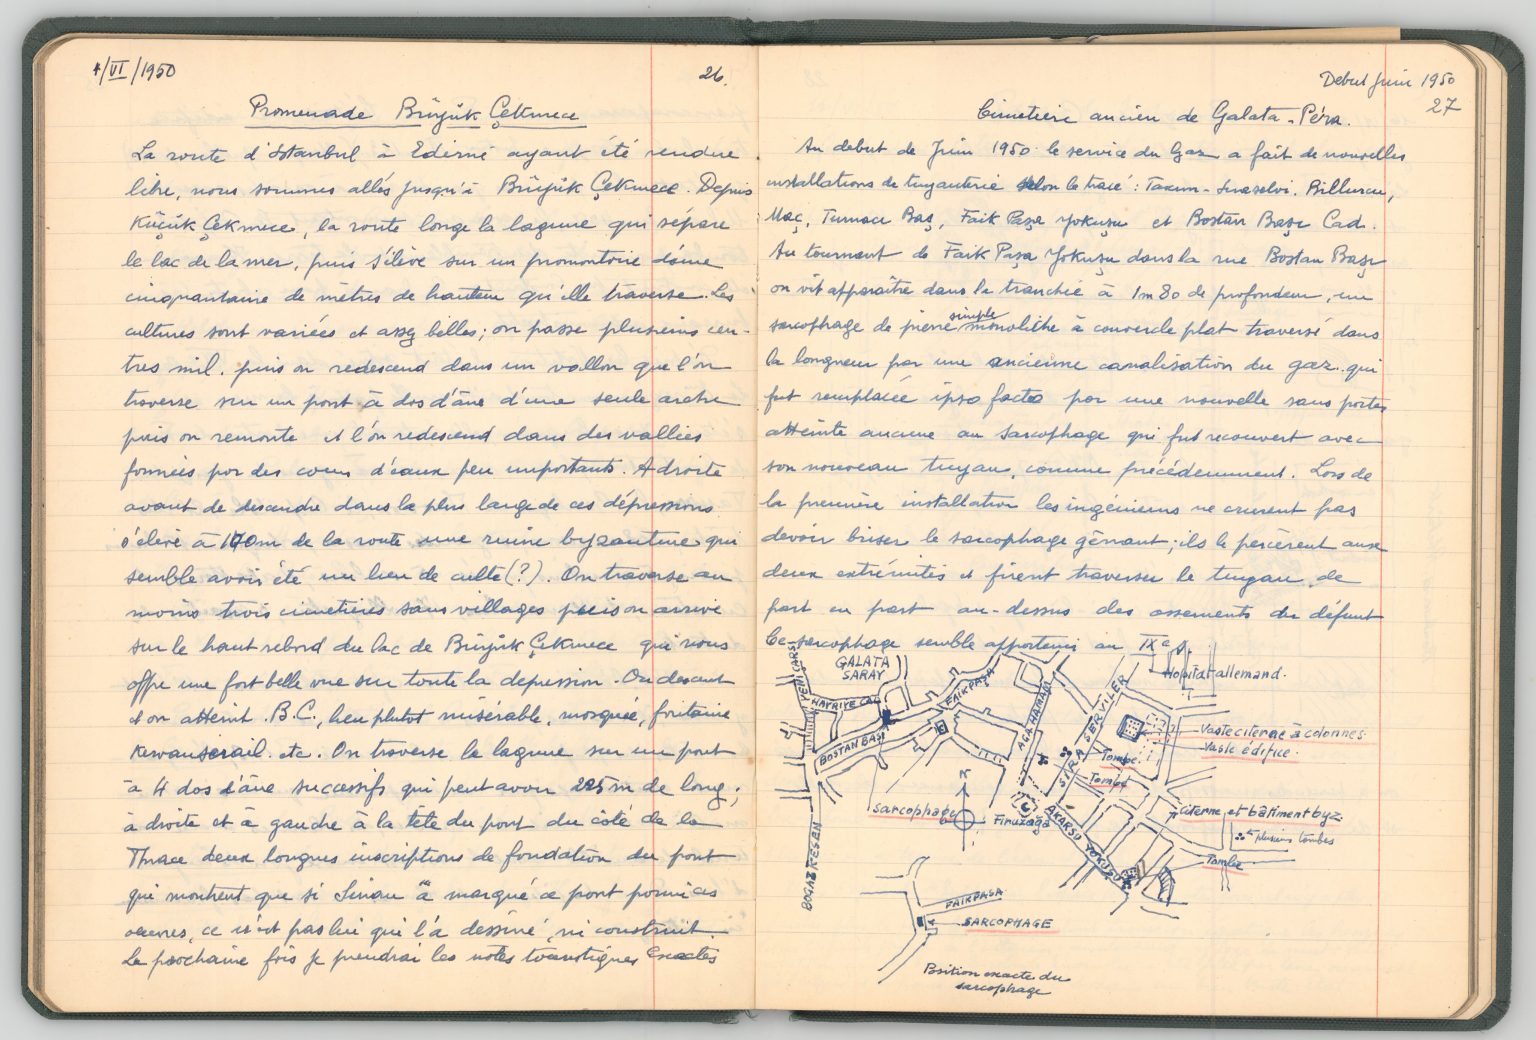 4/VI/1950
26.
Promenade Büyük Çekmece
La route d'Istanbul à Edirné ayant été rendue
libre, nous sommes allés jusqu'à Büyük Çekmece. Depuis
Küçük Çekmece, la route longe la lagune qui sépare
le lac de la mer, puis s'élève sur un promontoire d'une
cinquantaine de mètres de hauteur qu'elle traverse. Les
cultures sont variées et assez belles; on passe plusieurs cen-
tres mil. puis on redescend dans un vallon que l'on
traverse sur un pont à dos d'âne d'une seule arche
puis on remonte et l'on redescend dans des vallées
formées par des cours d'eaux peu importants. A droite
avant de descendre dans la plus large de ces dépressions
s'élève à 170m de la route une ruine byzantine qui
semble avoir été un lieu de culte (?). On traverse au
moins trois cimetières sans villages puis on arrive
sur le haut rebord du lac de Büyük Çekmece qui nous
offre une fort belle vue sur toute la depression. On descent
et on atteint B.C., lieu plutot misérable, mosquée, fontaine
Kervanserail. etc. On traverse la lagune sur un pont
à 4 dos d'âne successifs qui peut avoir 225m de long;
à droite et à gauche à la tête du pont du côté de la
Thrace deux longues inscriptions de fondation du pont
qui montrent que si Sinan a marqué ce pont parmi ces
oeuvres, ce n'est pas lui qui l'a dessiné, ni construit.
La prochaine fois je prendrai les notes touristiques exactes
Debut Juin 1950
27
Cimetière ancien de Galata-Péra.
Au debut de Juin 1950 le service du Gaz a fait de nouvelles
installations de tuyauterie selon le tracé: Taxim-Sıraselvi. Billurcu,
Maç, Turnacı Baş, Faik Paşa Yokuşu et Bostan Başı Cad.
Au tournant de Faik Paşa Yokuşu dans la rue Bostan Başı
on vit apparaître dans la tranchée à 1m80 de profondeur, un
sarcophage de pierre simple monolithe à couvercle plat traversé dans
la longueur par une ancienne canalisation du gaz qui
fut remplacée ipso facto par une nouvelle sans porter
atteinte aucune au sarcophage qui fut recouvert avec
son nouveau tuyau, comme précédemment. Lors de
la première installation les ingénieurs ne crurent pas
devoir briser le sarcophage gênant; ils le percèrent aux
deux extrémités et firent traverser le tuyau de
part en part au-dessus des ossements du défunt
Ce sarcophage semble appartenir au IXe s.
YENI CARSI
GALATA
SARAY
HAYRIYE CAD
BOSTAN BASI
FAIKPASA
AGA HAMAM
SIRA SERVILER
Hopital allemand.
Vaste citerne à colonnes
Vaste édifice.
Tombe
Tombe
sarcophage
N
Firuzaga
AKARSU YOKUSU
Citerne et bâtiment byz.
plusieurs tombes
Tombe
BOGAZ KESEN
FAIKPASA
SARCOPHAGE
Position exacte du
sarcophage